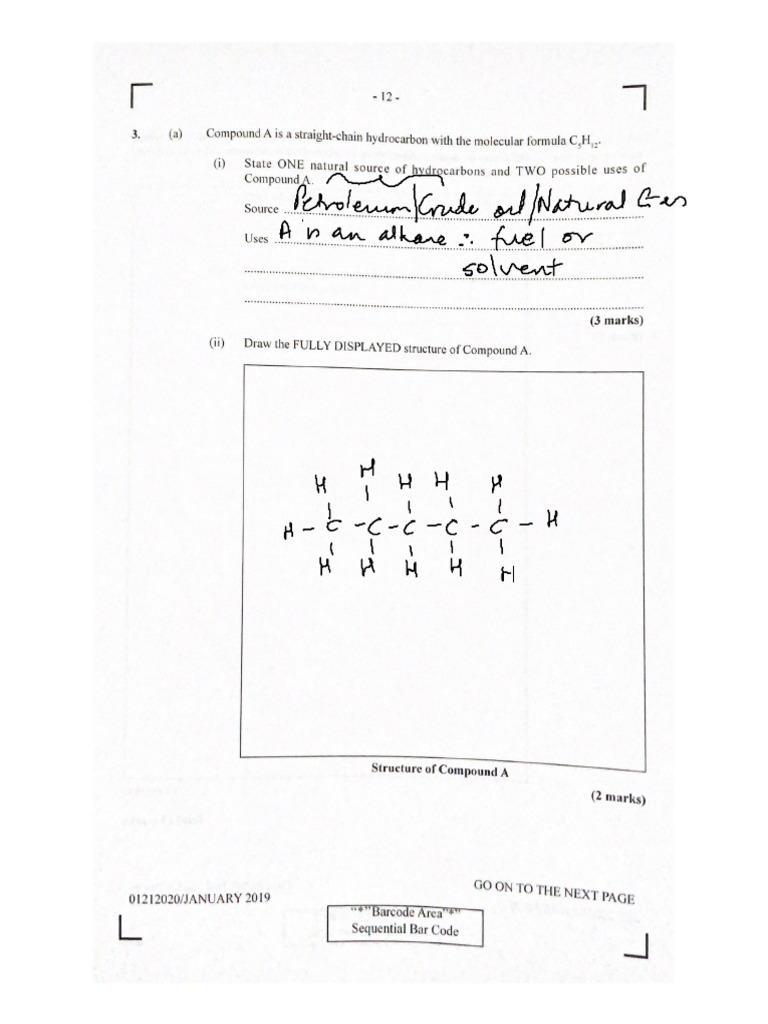 - 12 -
3. (a) Compound A is a straight-chain hydrocarbon with the molecular formula C₅H₁₂.
(i) State ONE natural source of hydrocarbons and TWO possible uses of
Compound A.
Source Petroleum/Crude oil/Natural Gas
Uses A is an alkane ∴ fuel or
solvent
(3 marks)
(ii) Draw the FULLY DISPLAYED structure of Compound A.
H H H H H
H - C - C - C - C - C - H
H H H H H
Structure of Compound A
(2 marks)
GO ON TO THE NEXT PAGE
01212020/JANUARY 2019
"*"Barcode Area"*"
Sequential Bar Code